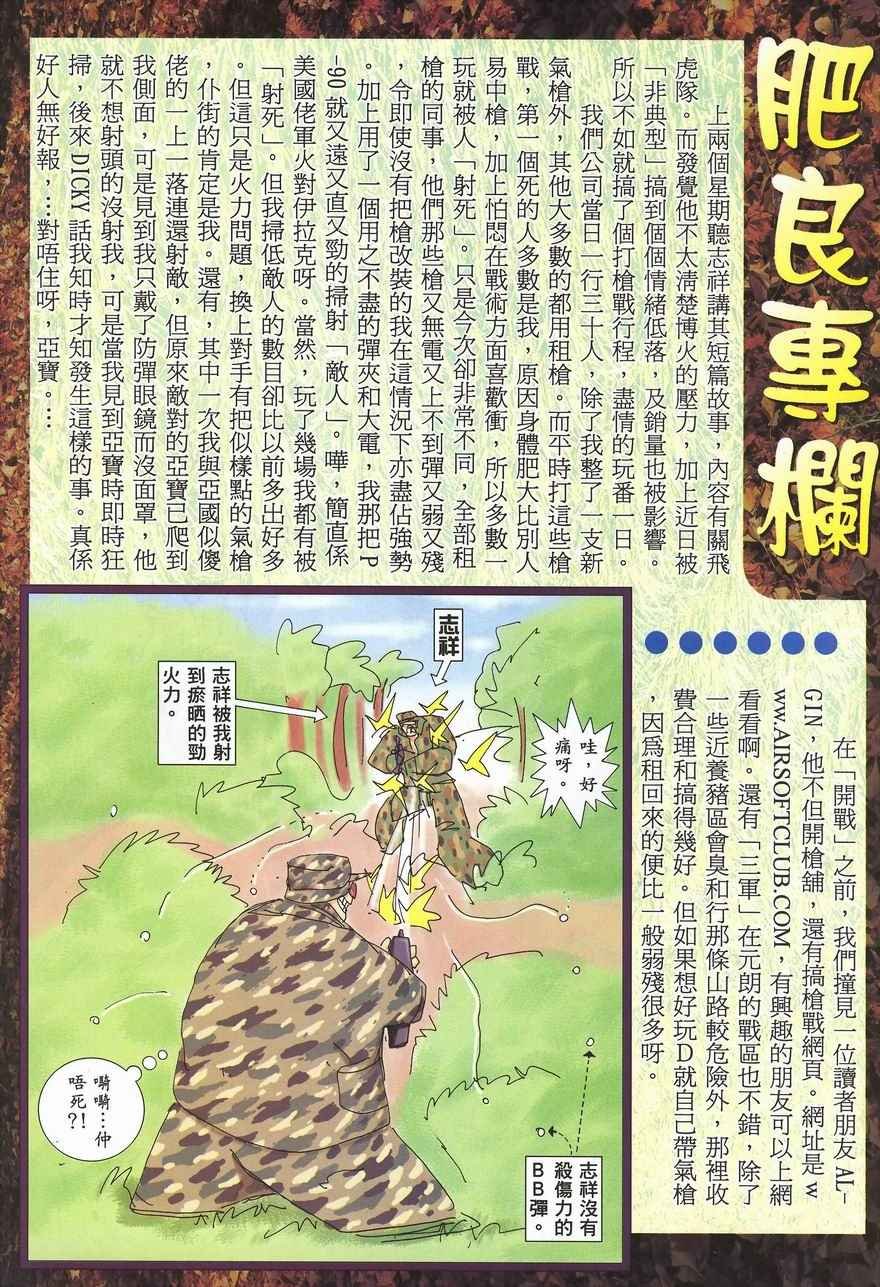 肥良專欄
上兩個星期聽志祥講其短篇故事，內容有關飛
虎隊。而發覺他不太清楚博火的壓力，加上近日被
「非典型」搞到個個情緒低落，及銷量也被影響。
所以不如就搞了個打槍戰行程，盡情的玩番一日。
我們公司當日一行三十人，除了我整了一支新
氣槍外，其他大多數的都用租槍。而平時打這些槍
戰，第一個死的人多數是我，原因身體肥大比別人
易中槍，加上怕悶在戰術方面喜歡衝，所以多數一
玩就被人「射死」。只是今次卻非常不同，全部租
槍的同事，他們那些槍又無電又上不到彈又弱又殘
，令即使沒有把槍改裝的我在這情況下亦盡佔強勢
。加上用了一個用之不盡的彈夾和大電，我那把P
-90就又遠又直又勁的掃射「敵人」。嘩，簡直係
美國佬軍火對伊拉克呀。當然，玩了幾場我都有被
「射死」。但我掃低敵人的數目卻比以前多出好多
。但這只是火力問題，換上對手有把似樣點的氣槍
，仆街的肯定是我。還有，其中一次我與亞國似傻
佬的一上一落連還射敵，但原來敵對的亞寶已爬到
我側面，可是見到我只戴了防彈眼鏡而沒面罩，他
就不想射頭的沒射我，可是當我見到亞寶時即時狂
掃，後來DICKY話我知時才知發生這樣的事。真係
好人無好報，…對唔住呀，亞寶。…
在「開戰」之前，我們撞見一位讀者朋友AL-
GIN，他不但開槍舖，還有搞槍戰網頁。網址是w
ww.AIRSOFTCLUB.COM，有興趣的朋友可以上網
看看啊。還有「三軍」在元朗的戰區也不錯，除了
一些近養豬區會臭和行那條山路較危險外，那裡收
費合理和搞得幾好。但如果想好玩D就自己帶氣槍
，因為租回來的便比一般弱殘很多呀。
志祥
哇，好
痛呀。
志祥被我射
到瘀晒的勁
火力。
嘀嘀…仲
唔死?!
志祥沒有
殺傷力的
BB彈。